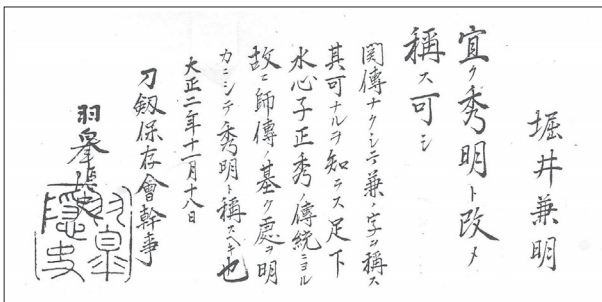 堀井兼明
宜ク秀明ト改メ
稱ス可シ
関傳ナクシテ兼ノ字ヲ稱ス
其可ナルヲ知ラス足下
水心子正秀ノ傳統ニヨル
故ニ師傳ノ基ク處ヲ明
カニシテ秀明ト稱スヘキ也
大正二年十一月十八日
刀劔保存會幹事
羽皋
羽皋隠史